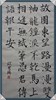 故園東望路漫漫雙
袖龍鍾淚不乾馬上
相逢無紙筆憑君傳
語報平安